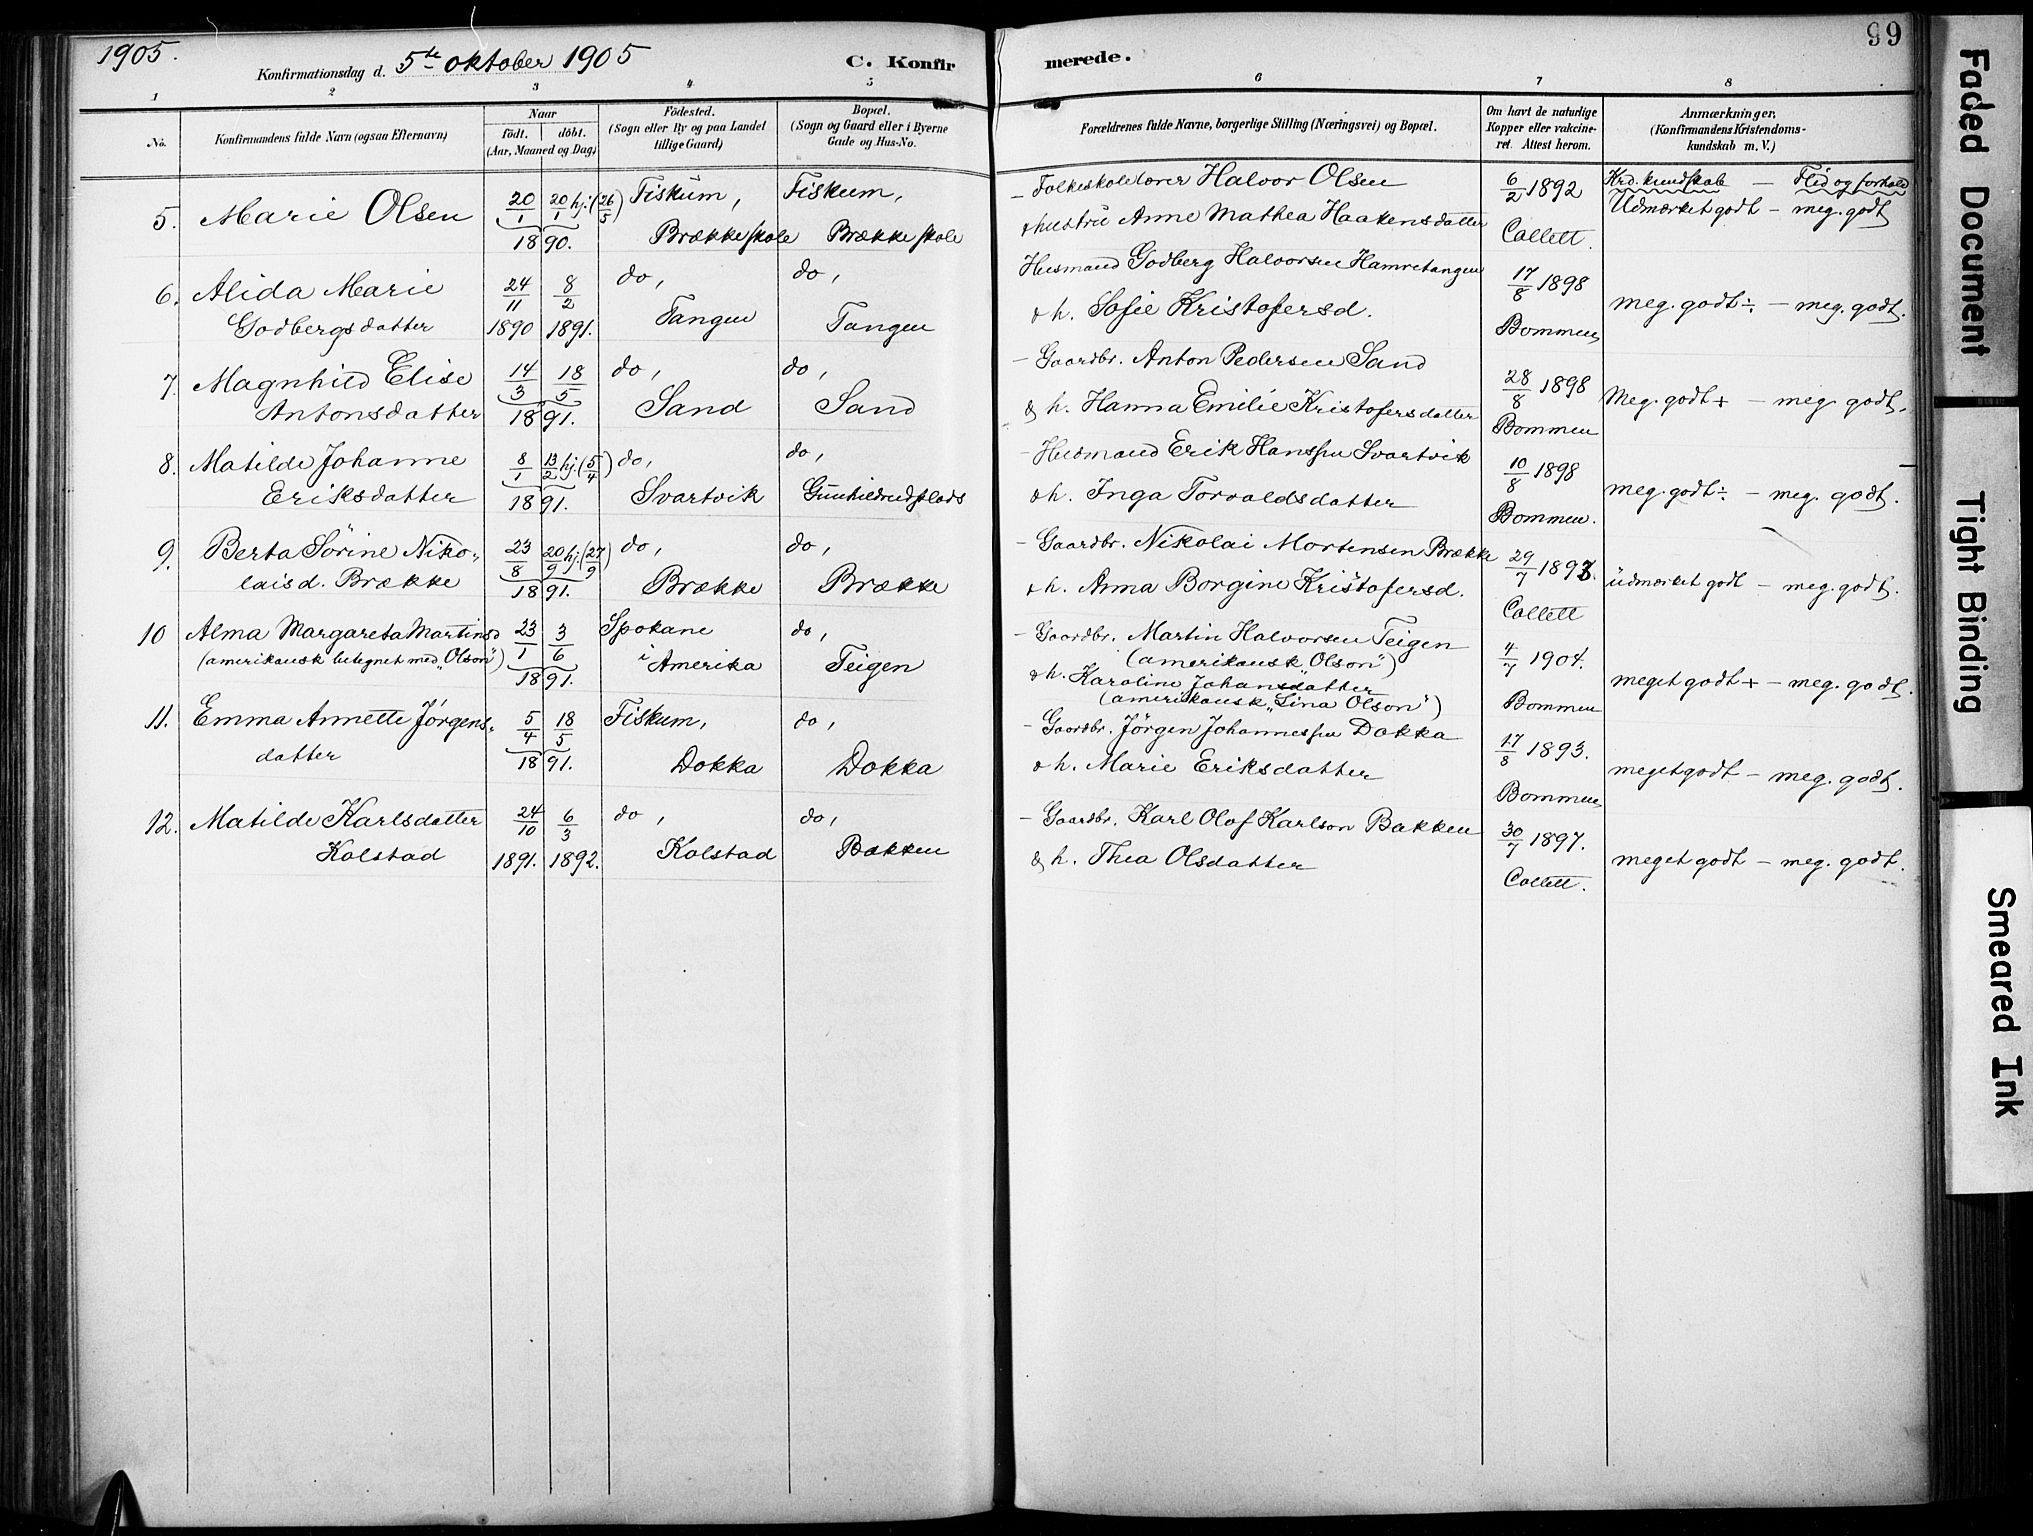 1905.
Konfirmationsdag d. 5te oktober 1905
C. Konfirmerede.
99
1 2 3 4 5 6 7 8
No.
Konfirmandens fulde Navn (ogsaa Efternavn)
Naar
født. døbt.
(Aar, Maaned og Dag)
Födested.
(Sogn eller By og paa Landet
tillige Gaard)
Bopæl.
(Sogn og Gaard eller i Byerne
Gade og Hus-No.
Forældrenes fulde Navne, borgerlige Stilling (Næringsvei) og Bopæl.
Om havt de naturlige
Kopper eller vakcine-
ret. Attest herom.
Anmærkninger.
(Konfirmandens Kristendoms-
kundskab m. V.)
Krd. kundskab — Flid og forhold
5. Marie Olsen 20/1 20/1 hj. (26/5) 1890. Fiskum, Brække skole Fiskum, Brække skole
— Folkeskolelærer Halvor Olsen
& hustru Anne Mathea Haakensdatter
6/2 1892 Collett.
Udmærket godt — meg. godt
6. Alida Marie
Godbergsdatter
24/11 1890 8/2 1891. do, Tangen do, Tangen
Husmand Godberg Halvorsen Hamretangen
& h. Sofie Kristofersd.
17/8 1898 Bommen
meg. godt ÷ — meg. godt.
7. Magnhild Elise
Antonsdatter
14/3 18/5 1891. do, Sand do, Sand
— Gaardbr. Anton Pedersen Sand
& h. Hanna Emilie Kristofersdatter
28/8 1898 Bommen
Meg. godt + — meg. godt.
8. Matilde Johanne
Eriksdatter
8/1 13/2 hj. (5/4) 1891. do, Svartvik do, Gunhildrudplads
— Husmand Erik Hanssen Svartvik
& h. Inga Torvaldsdatter
10/8 1898 Bommen.
meg. godt ÷ — meg. godt.
9. Berta Sørine Niko-
laisd. Brække
23/8 20/9 hj. (27/9) 1891. do, Brække do, Brække
— Gaardbr. Nikolai Mortensen Brække
& h. Anna Borgine Kristofersd.
29/7 1893. Collett
udmærket godt — meg. godt.
10 Alma Margareta Martinsd
(amerikansk betegnet med „Olson")
23/1 3/6 1891. Spokane i Amerika do, Teigen
— Gaardbr. Martin Halvorsen Teigen
(amerikansk „Olson")
& h. Karoline Johansdatter
(amerikansk „Lina Olson")
4/7 1904. Bommen
meget godt + — meg. godt.
11. Emma Annette Jørgens-
datter
5/4 18/5 1891. Fiskum, Dokka do, Dokka
— Gaardbr. Jörgen Johannessen Dokka
& h. Marie Eriksdatter
17/8 1893. Bommen
meget godt — meg. godt.
12. Matilde Karlsdatter
Kolstad
24/10 1891. 6/3 1892. do, Kolstad do, Bakken
— Gaardbr. Karl Olof Karlson Bakken
& h. Thea Olsdatter
30/7 1897. Collett.
meget godt — meg. godt.
Faded Document
Tight Binding
Smeared Ink